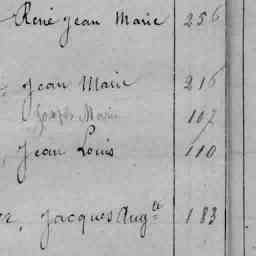 René Jean Marie 256
Jean Marie 216
Joseph Marie 107
, Jean Louis 110
Jacques Aug.te 183